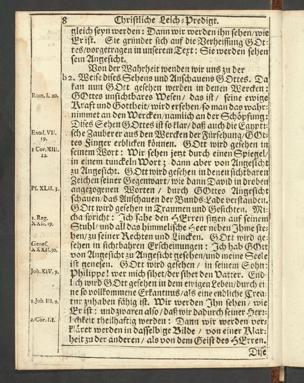 8 Christliche Leich-Predigt.
gleich seyn werden: Dann wir werden ihn sehen/wie
Er ist. Sie gründet sich auf die Verheissung GOt-
tes/vorgetragen in unserem Text: Sie werden sehen
sein Angesicht.
Von der Warheit wenden wir uns zu der
b 2. Weise dises Sehens und Anschauens GOttes. Da
kan nun GOtt gesehen werden in denen Wercken:
Rom. I. 20. GOttes unsichtbares Wesen/ das ist/ seine ewige
Krafft und Gottheit/ wird ersehen/ so man das wahr-
nimmet an den Wercken/ nämlich an der Schöpfung:
Dises Sehen GOttes ist so klar/ daß auch die Egypti-
Exod. VII. sche Zauberer aus den Wercken der Fürsehung/ GOt-
19. tes Finger erblicken können. GOtt wird gesehen in
1 Cor. XIII. seinem Wort: Wir sehen jetzt durch einen Spiegel/
12. in einem tunckeln Wort; dann aber von Angesicht
zu Angesicht. GOtt wird gesehen in denen sichtbaren
Zeichen seiner Gegenwart/ wie dann David in dreben
angezogenen Worten/ durch GOttes Angesicht
schauen/das Anschauen der Bunds-Lade verstanden.
GOtt wird gesehen in Traumen und Gesichten. Mi-
1. Reg. cha spricht: Ich sahe den HErren sitzen auf seinem
XXII. 19. Stuhl/ und all das himmlische Heer neben Ihme ste-
hen/ zu seiner Rechten und Lincken. GOtt wird ge-
Genes. sehen in sichtbahren Erscheinungen: Ich hab GOtt
XXXII. 30. von Angesicht zu Angesicht gesehen/ und meine Seele
ist genesen. GOtt wird gesehen/ in seinem Sohn:
Joh. XIV. 9. Philippe! wer mich sihet/ der sihet den Vatter. End-
lich wird GOtt gesehen in dem ewigen Leben/ durch ei-
ne so vollkommene Erkantnus/ als eine endliche Crea-
1. Joh. III. 2. tur zu haben fähig ist. Wir werden Ihn sehen/ wie
Er ist: und zwaren also/ daß wir dadurch seiner Herr-
2. Cor. III. lichkeit theilhaftig werden: Dann wir werden ver-
kläret werden in dasselbige Bilde/ von einer Klar-
heit zu der anderen/ als von dem Geist des HErren.
Dise